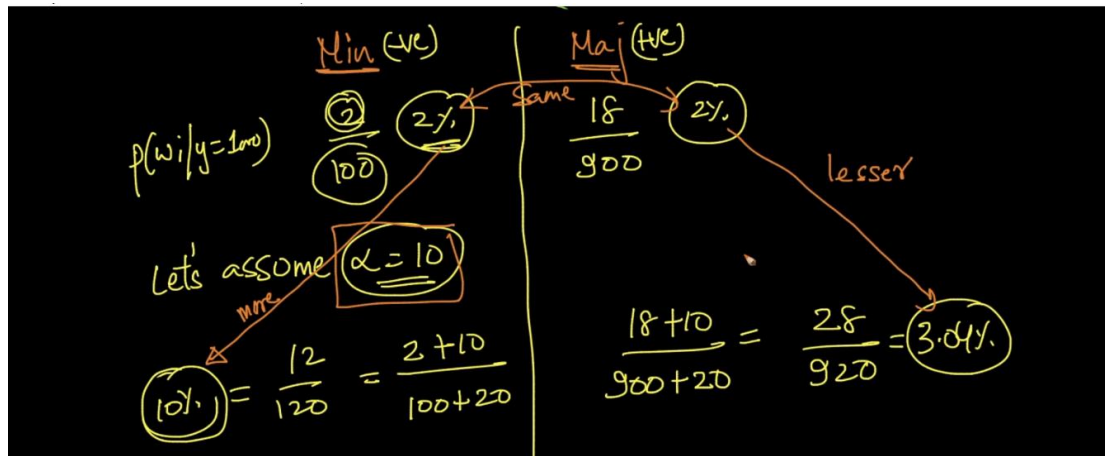 Min (-ve)
Maj (+ve)
Same
p(wi/y=1000)
2
100
2%
18
900
2%
lesser
Let's assume α = 10
more
10% = 12/120 = 2+10/100+20
18+10/900+20 = 28/920 = 3.04%